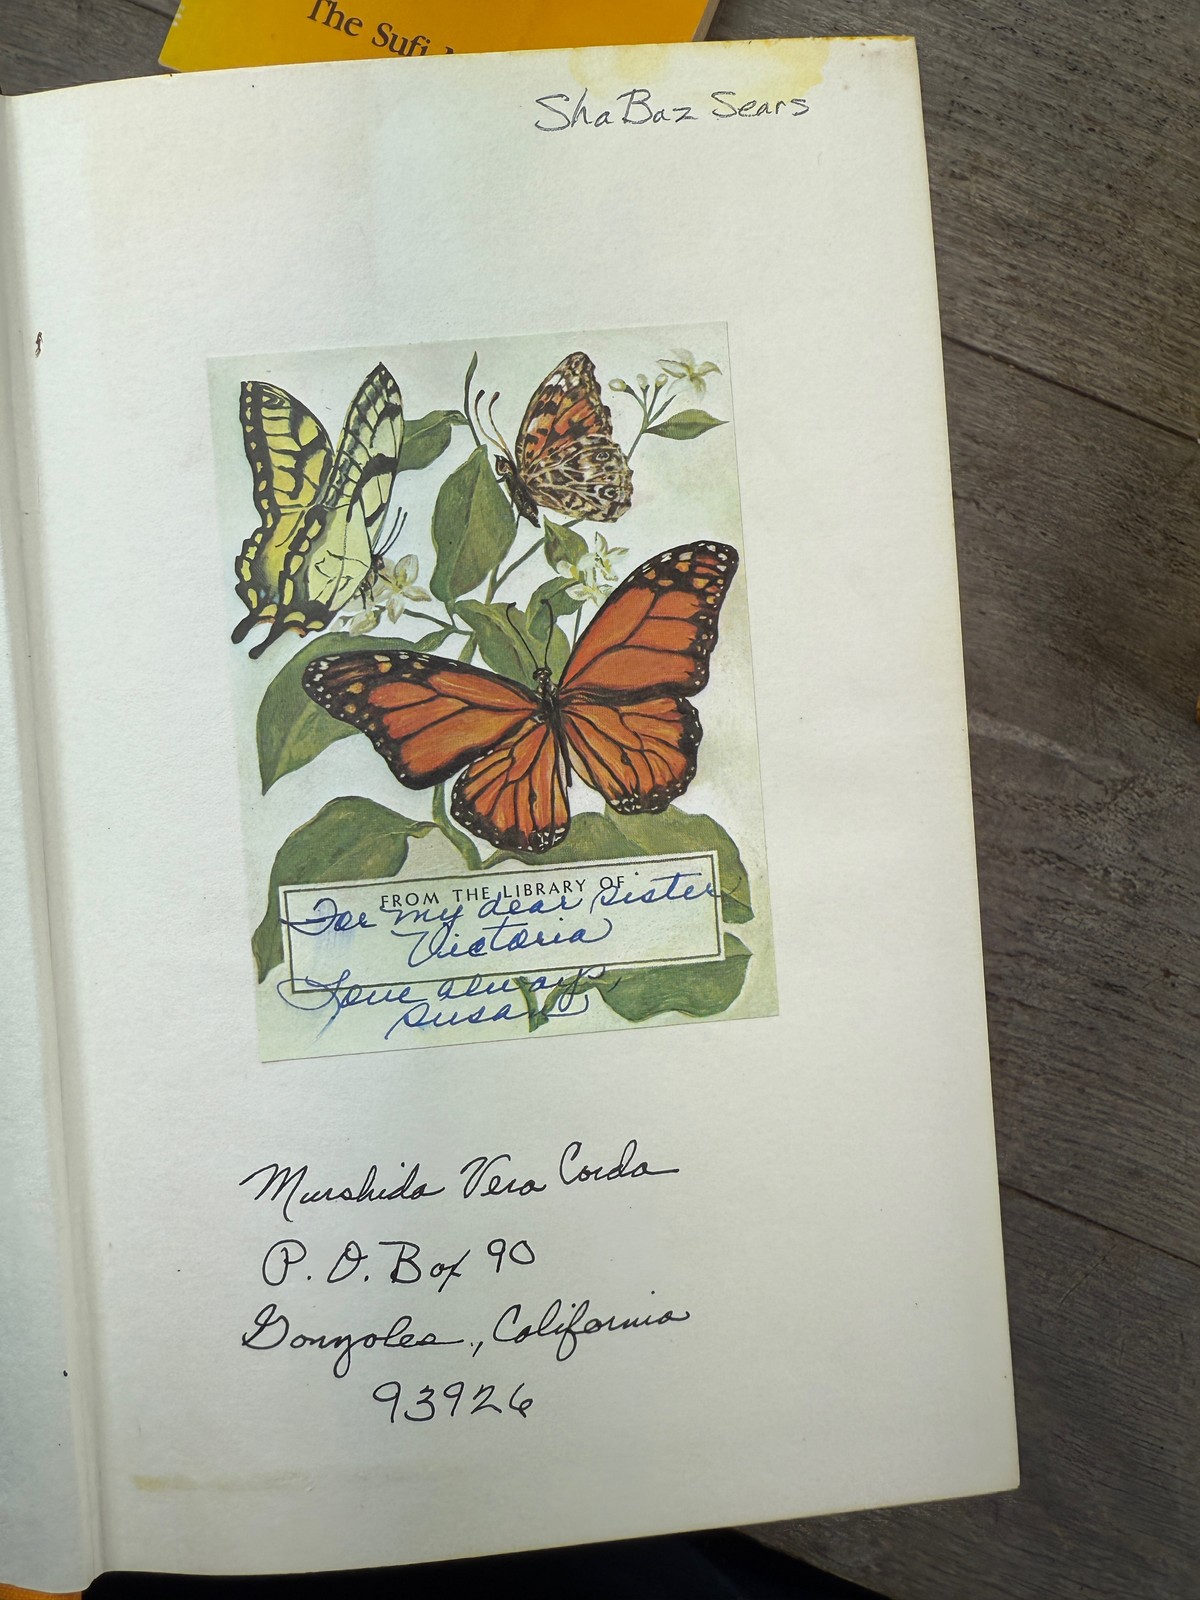 The Sufi
ShaBaz Sears
FROM THE LIBRARY OF
For my dear Sister
Victoria
Love always,
Susan
Murshida Vera Corda
P. O. Box 90
Gonzales, California
93926